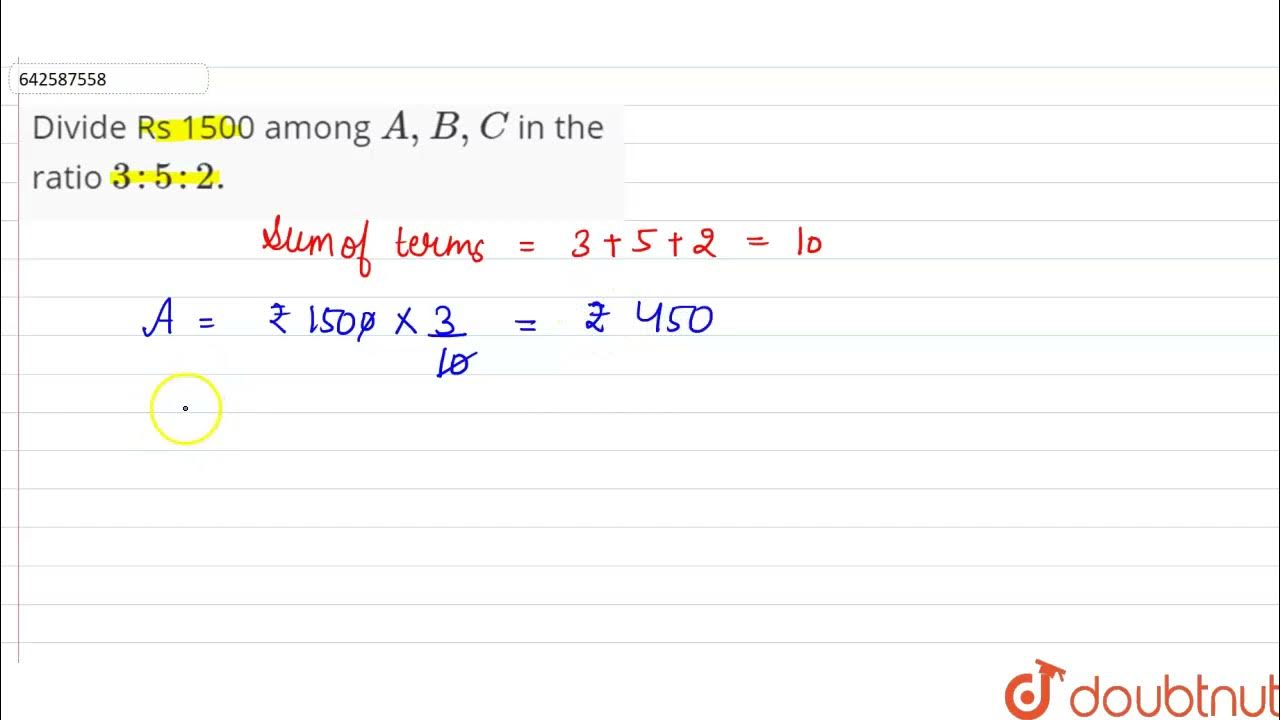 642587558
Divide Rs 1500 among A, B, C in the
ratio 3 : 5 : 2.
Sum of terms = 3 + 5 + 2 = 10
A = ₹ 1500 × 3/10 = ₹ 450
doubtnut